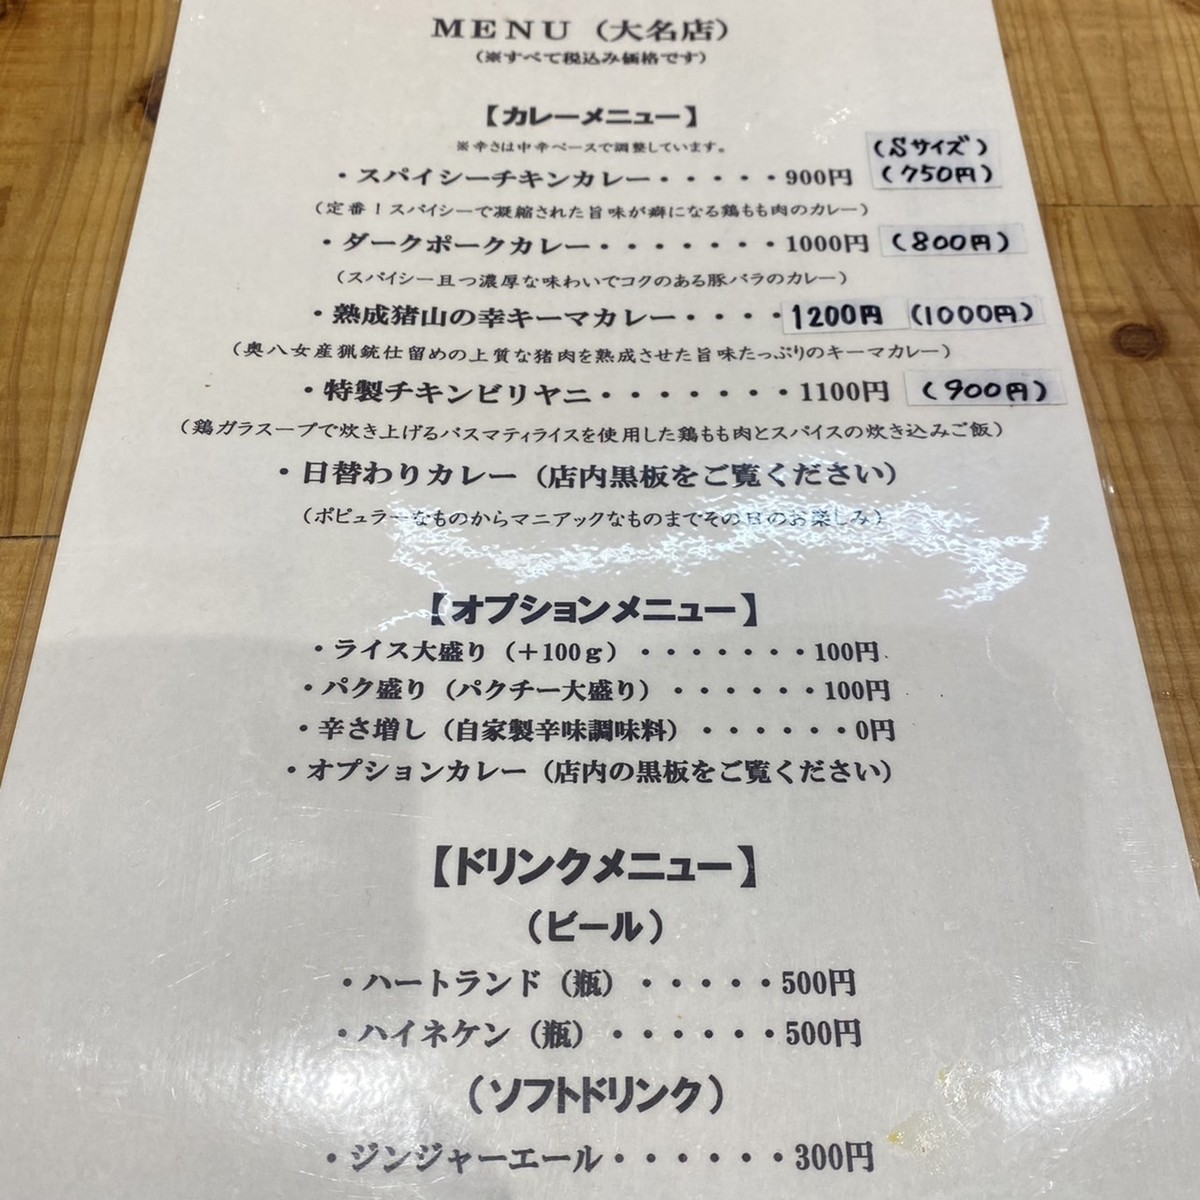 MENU（大名店）
（※すべて税込み価格です）
【カレーメニュー】
※辛さは中辛ベースで調整しています。
（Sサイズ）
・スパイシーチキンカレー・・・・・900円 （750円）
（定番！スパイシーで凝縮された旨味が癖になる鶏もも肉のカレー）
・ダークポークカレー・・・・・・・1000円 （800円）
（スパイシー且つ濃厚な味わいでコクのある豚バラのカレー）
・熟成猪山の幸キーマカレー・・・・1200円 （1000円）
（奥八女産猟銃仕留めの上質な猪肉を熟成させた旨味たっぷりのキーマカレー）
・特製チキンビリヤニ・・・・・・・1100円 （900円）
（鶏ガラスープで炊き上げるバスマティライスを使用した鶏もも肉とスパイスの炊き込みご飯）
・日替わりカレー（店内黒板をご覧ください）
（ポピュラーなものからマニアックなものまでその日のお楽しみ）
【オプションメニュー】
・ライス大盛り（＋100ｇ）・・・・・・・100円
・パク盛り（パクチー大盛り）・・・・・・100円
・辛さ増し（自家製辛味調味料）・・・・・・0円
・オプションカレー（店内の黒板をご覧ください）
【ドリンクメニュー】
（ビール）
・ハートランド（瓶）・・・・・500円
・ハイネケン（瓶）・・・・・・500円
（ソフトドリンク）
・ジンジャーエール・・・・・・300円